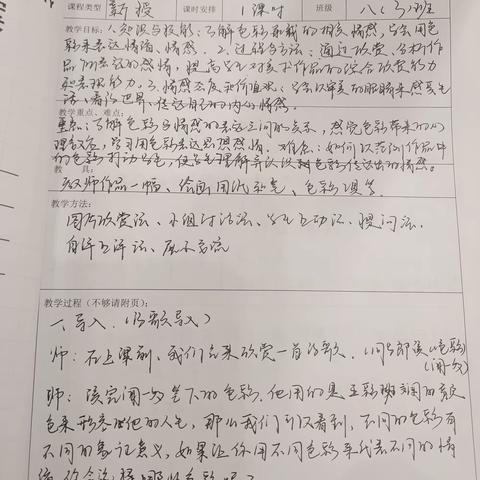 课程类型 新授 课时安排 1课时 班级 八(3)班
教学目标: 1.知识与技能:了解色彩和我的相关情感,与会用色
彩来表达情绪、情感。2.过程与方法:通过欣赏、分析作
品所表达的感情,提高学生对美术作品的综合欣赏能力
和表现能力。3.情感态度和价值观:
活、看待世界、传达自己的内心情感。
教学重点、难点:
重点:了解色彩与情感的表达之间的关系,感觉色彩带来的心
理效应,学习用色彩表达思想感情。难点:如何以范例作品中
的色彩打动学生,使学生理解并认识到色彩传达出的情感。
教具:
教师作品一幅、绘画用纸和笔、色彩
教学方法:
图片欣赏法、小组讨论法、学生互动法、提问法、
自评互评法、展示交流
教学过程(不够请附页):
一、导入:(诗歌导入)
师:在上课前,我们先来欣赏一首诗歌。(同学朗读《色彩》
(闻一多)
师:读完闻一多笔下的色彩,他用的是五彩斑斓的
色来形容他的人生,那么我们可以看到,不同的色彩有
不同的象征意义,如果让你用不同色彩来代表不同的情
绪,你会选择哪些色彩呢?